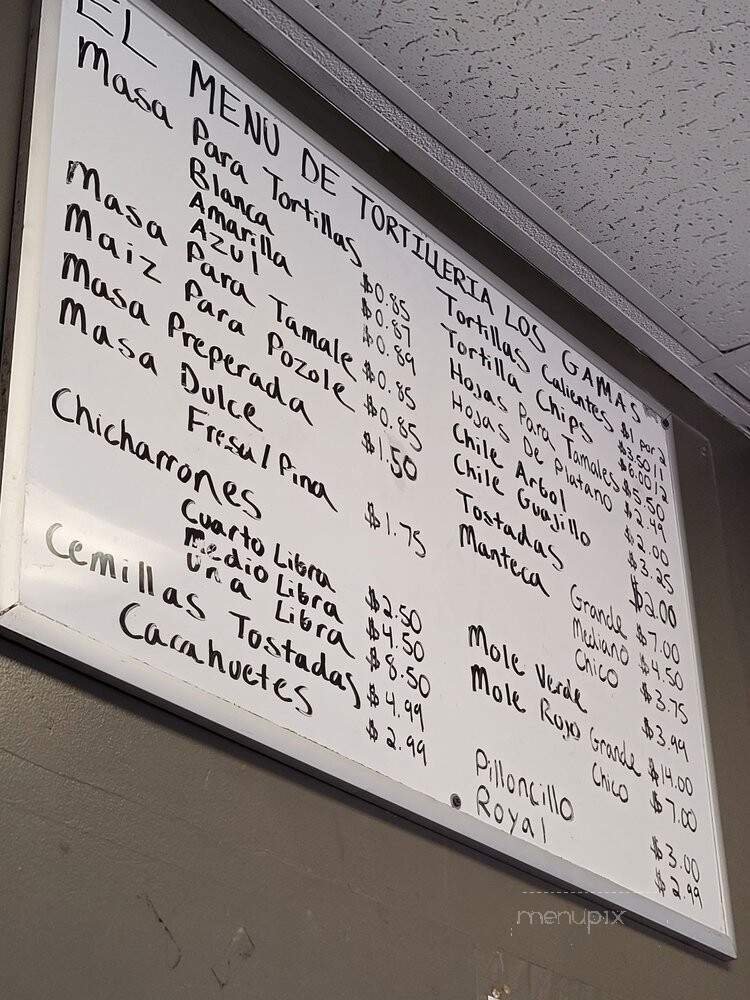 EL MENU DE TORTILLERIA LOS GAMAS
Masa Para Tortillas
Blanca $0.85
Amarilla $0.87
AZUL $0.89
Masa Para Tamale $0.85
Maiz Para Pozole $0.85
Masa Preperada $1.50
Masa Dulce
Fresa/Pina $1.75
Chicharrones
Cuarto Libra $2.50
Medio Libra $4.50
Una Libra $8.50
Cemillas Tostadas $4.99
Cacahuetes $2.99
Tortillas Calientes $1 por 2
Tortilla Chips $3.50/1
$6.00/2
Hojas Para Tamales $5.50
Hojas De Platano $2.49
Chile Arbol $2.00
Chile Guajillo $3.25
Tostadas $2.00
Manteca
Grande $7.00
Mediano $4.50
Chico $3.75
Mole Verde $3.99
Mole Rojo Grande $14.00
Chico $7.00
Pilloncillo $3.00
Royal $2.99
menupix